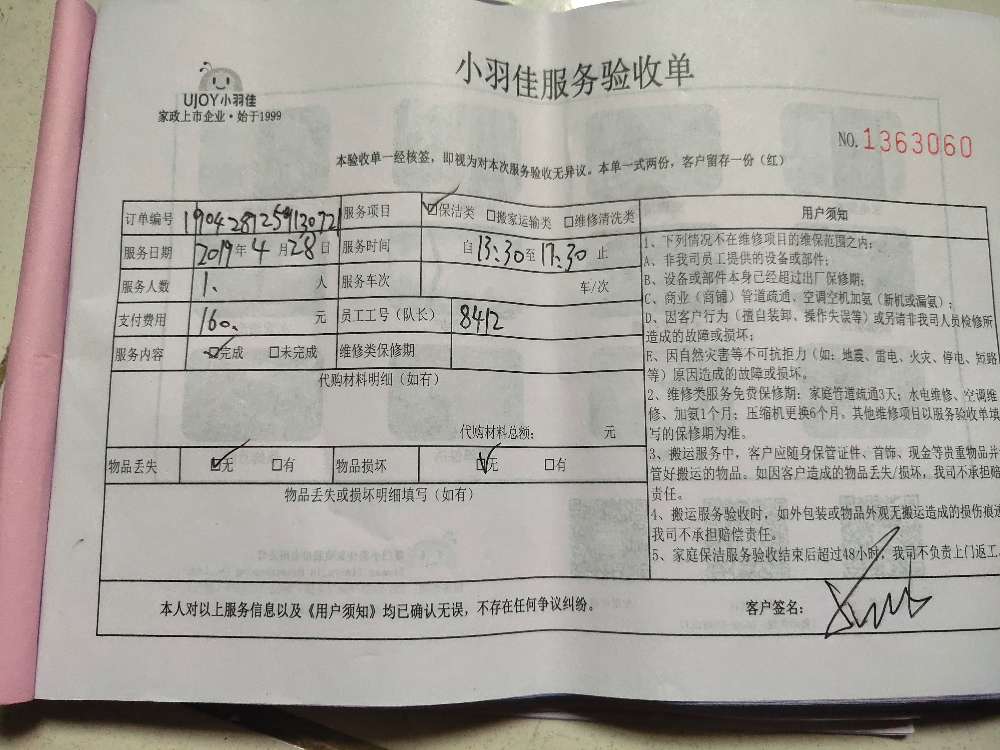 UJOY小羽佳
家政上市企业·始于1999
小羽佳服务验收单
NO.1363060
本验收单一经核签，即视为对本次服务验收无异议。本单一式两份，客户留存一份（红）
订单编号
服务项目 ☑保洁类 □搬家运输类 □维修清洗类
服务日期 2019年4月28日 服务时间 自13:30至17:30止
服务人数 1. 人 服务车次 车/次
支付费用 160. 元 员工工号（队长） 8412
服务内容 ☑完成 □未完成 维修类保修期
代购材料明细（如有）
代购材料总额： 元
物品丢失 ☑无 □有 物品损坏 ☑无 □有
物品丢失或损坏明细填写（如有）
用户须知
1、下列情况不在维修项目的维保范围之内：
A、非我司员工提供的设备或部件；
B、设备或部件本身已经超过出厂保修期；
C、商业（商铺）管道疏通、空调空机加氨（新机或漏氨）；
D、因客户行为（擅自装卸、操作失误等）或另请非我司人员检修所
造成的故障或损坏；
E、因自然灾害等不可抗拒力（如：地震、雷电、火灾、停电、短路
等）原因造成的故障或损坏。
2、维修类服务免费保修期：家庭管道疏通3天；水电维修、空调维
修、加氨1个月；压缩机更换6个月。其他维修项目以服务验收单填
写的保修期为准。
3、搬运服务中，客户应随身保管证件、首饰、现金等贵重物品并
管好搬运的物品。如因客户造成的物品丢失/损坏，我司不承担赔
责任。
4、搬运服务验收时，如外包装或物品外观无搬运造成的损伤痕迹
我司不承担赔偿责任。
5、家庭保洁服务验收结束后超过48小时，我司不负责上门返工。
本人对以上服务信息以及《用户须知》均已确认无误，不存在任何争议纠纷。 客户签名：